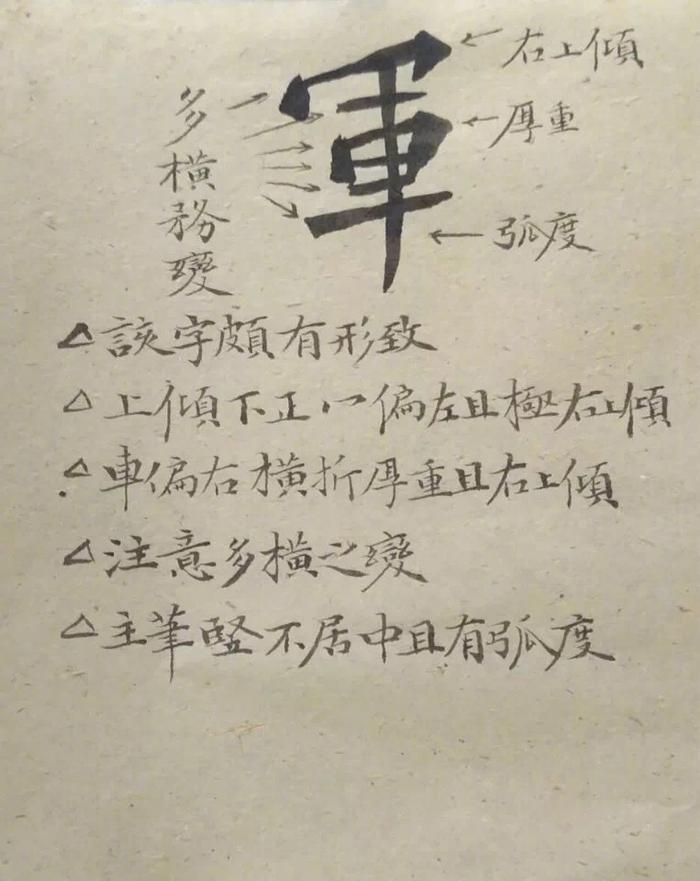 軍
右上傾
厚重
弧度
多橫務變
該字頗有形致
上傾下正冖偏左且極右上傾
車偏右橫折厚重且右上傾
注意多橫之變
主筆竪不居中且有弧度